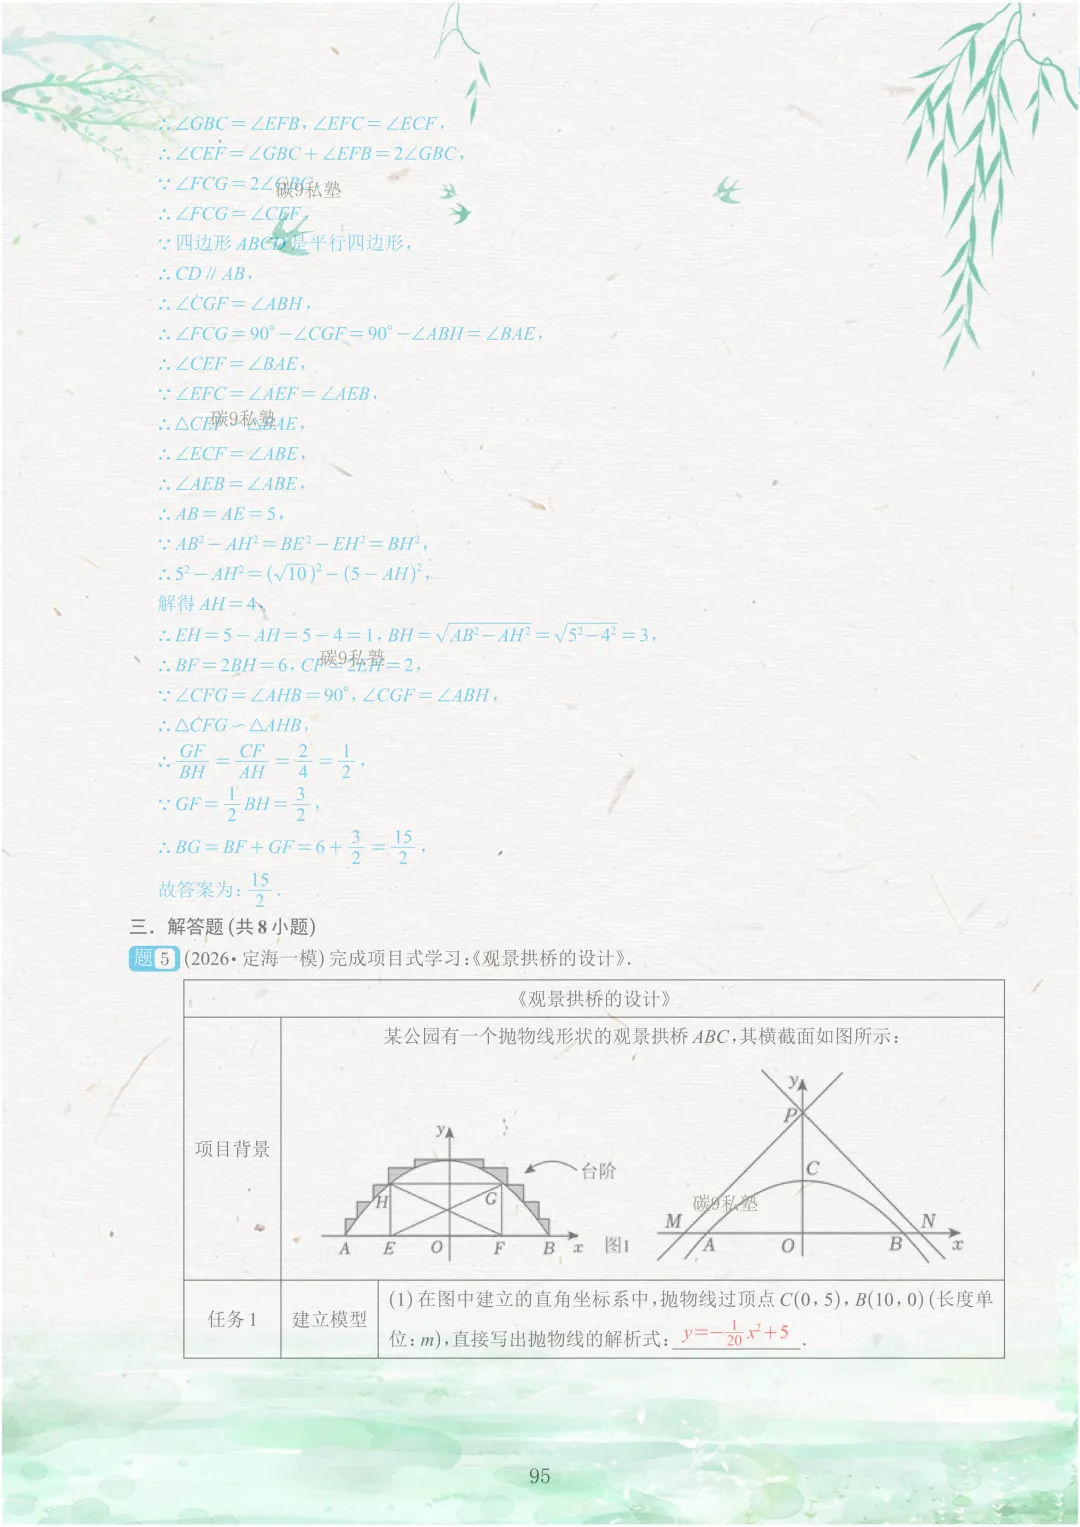 ∴∠GBC=∠EFB,∠EFC=∠ECF,
∴∠CEF=∠GBC+∠EFB=2∠GBC,
∵∠FCG=2∠GBC,
碳9私塾
∴∠FCG=∠CEF,
∵四边形ABCD是平行四边形,
∴CD∥AB,
∴∠CGF=∠ABH,
∴∠FCG=90°-∠CGF=90°-∠ABH=∠BAE,
∴∠CEF=∠BAE,
∵∠EFC=∠AEF=∠AEB,
∴△CEF∽△BAE,
碳9私塾
∴∠ECF=∠ABE,
∴∠AEB=∠ABE,
∴AB=AE=5,
∵AB²-AH²=BE²-EH²=BH²,
∴5²-AH²=(√10)²-(5-AH)²,
解得AH=4,
∴EH=5-AH=5-4=1,BH=√(AB²-AH²)=√(5²-4²)=3,
∴BF=2BH=6,CF=2EH=2,
碳9私塾
∵∠CFG=∠AHB=90°,∠CGF=∠ABH,
∴△CFG∽△AHB,
∴GF/BH=CF/AH=2/4=1/2,
∵GF=1/2BH=3/2,
∴BG=BF+GF=6+3/2=15/2,
故答案为:15/2.
三. 解答题(共8小题)
题5 (2026·定海一模)完成项目式学习:《观景拱桥的设计》.
《观景拱桥的设计》
项目背景
某公园有一个抛物线形状的观景拱桥ABC,其横截面如图所示:
y
台阶
H G
A E O F B x
图1
y
P
C
碳9私塾
M N
A O B x
任务1
建立模型
(1)在图中建立的直角坐标系中,抛物线过顶点C(0,5),B(10,0)(长度单
位:m),直接写出抛物线的解析式: y=-1/20x²+5 .
95